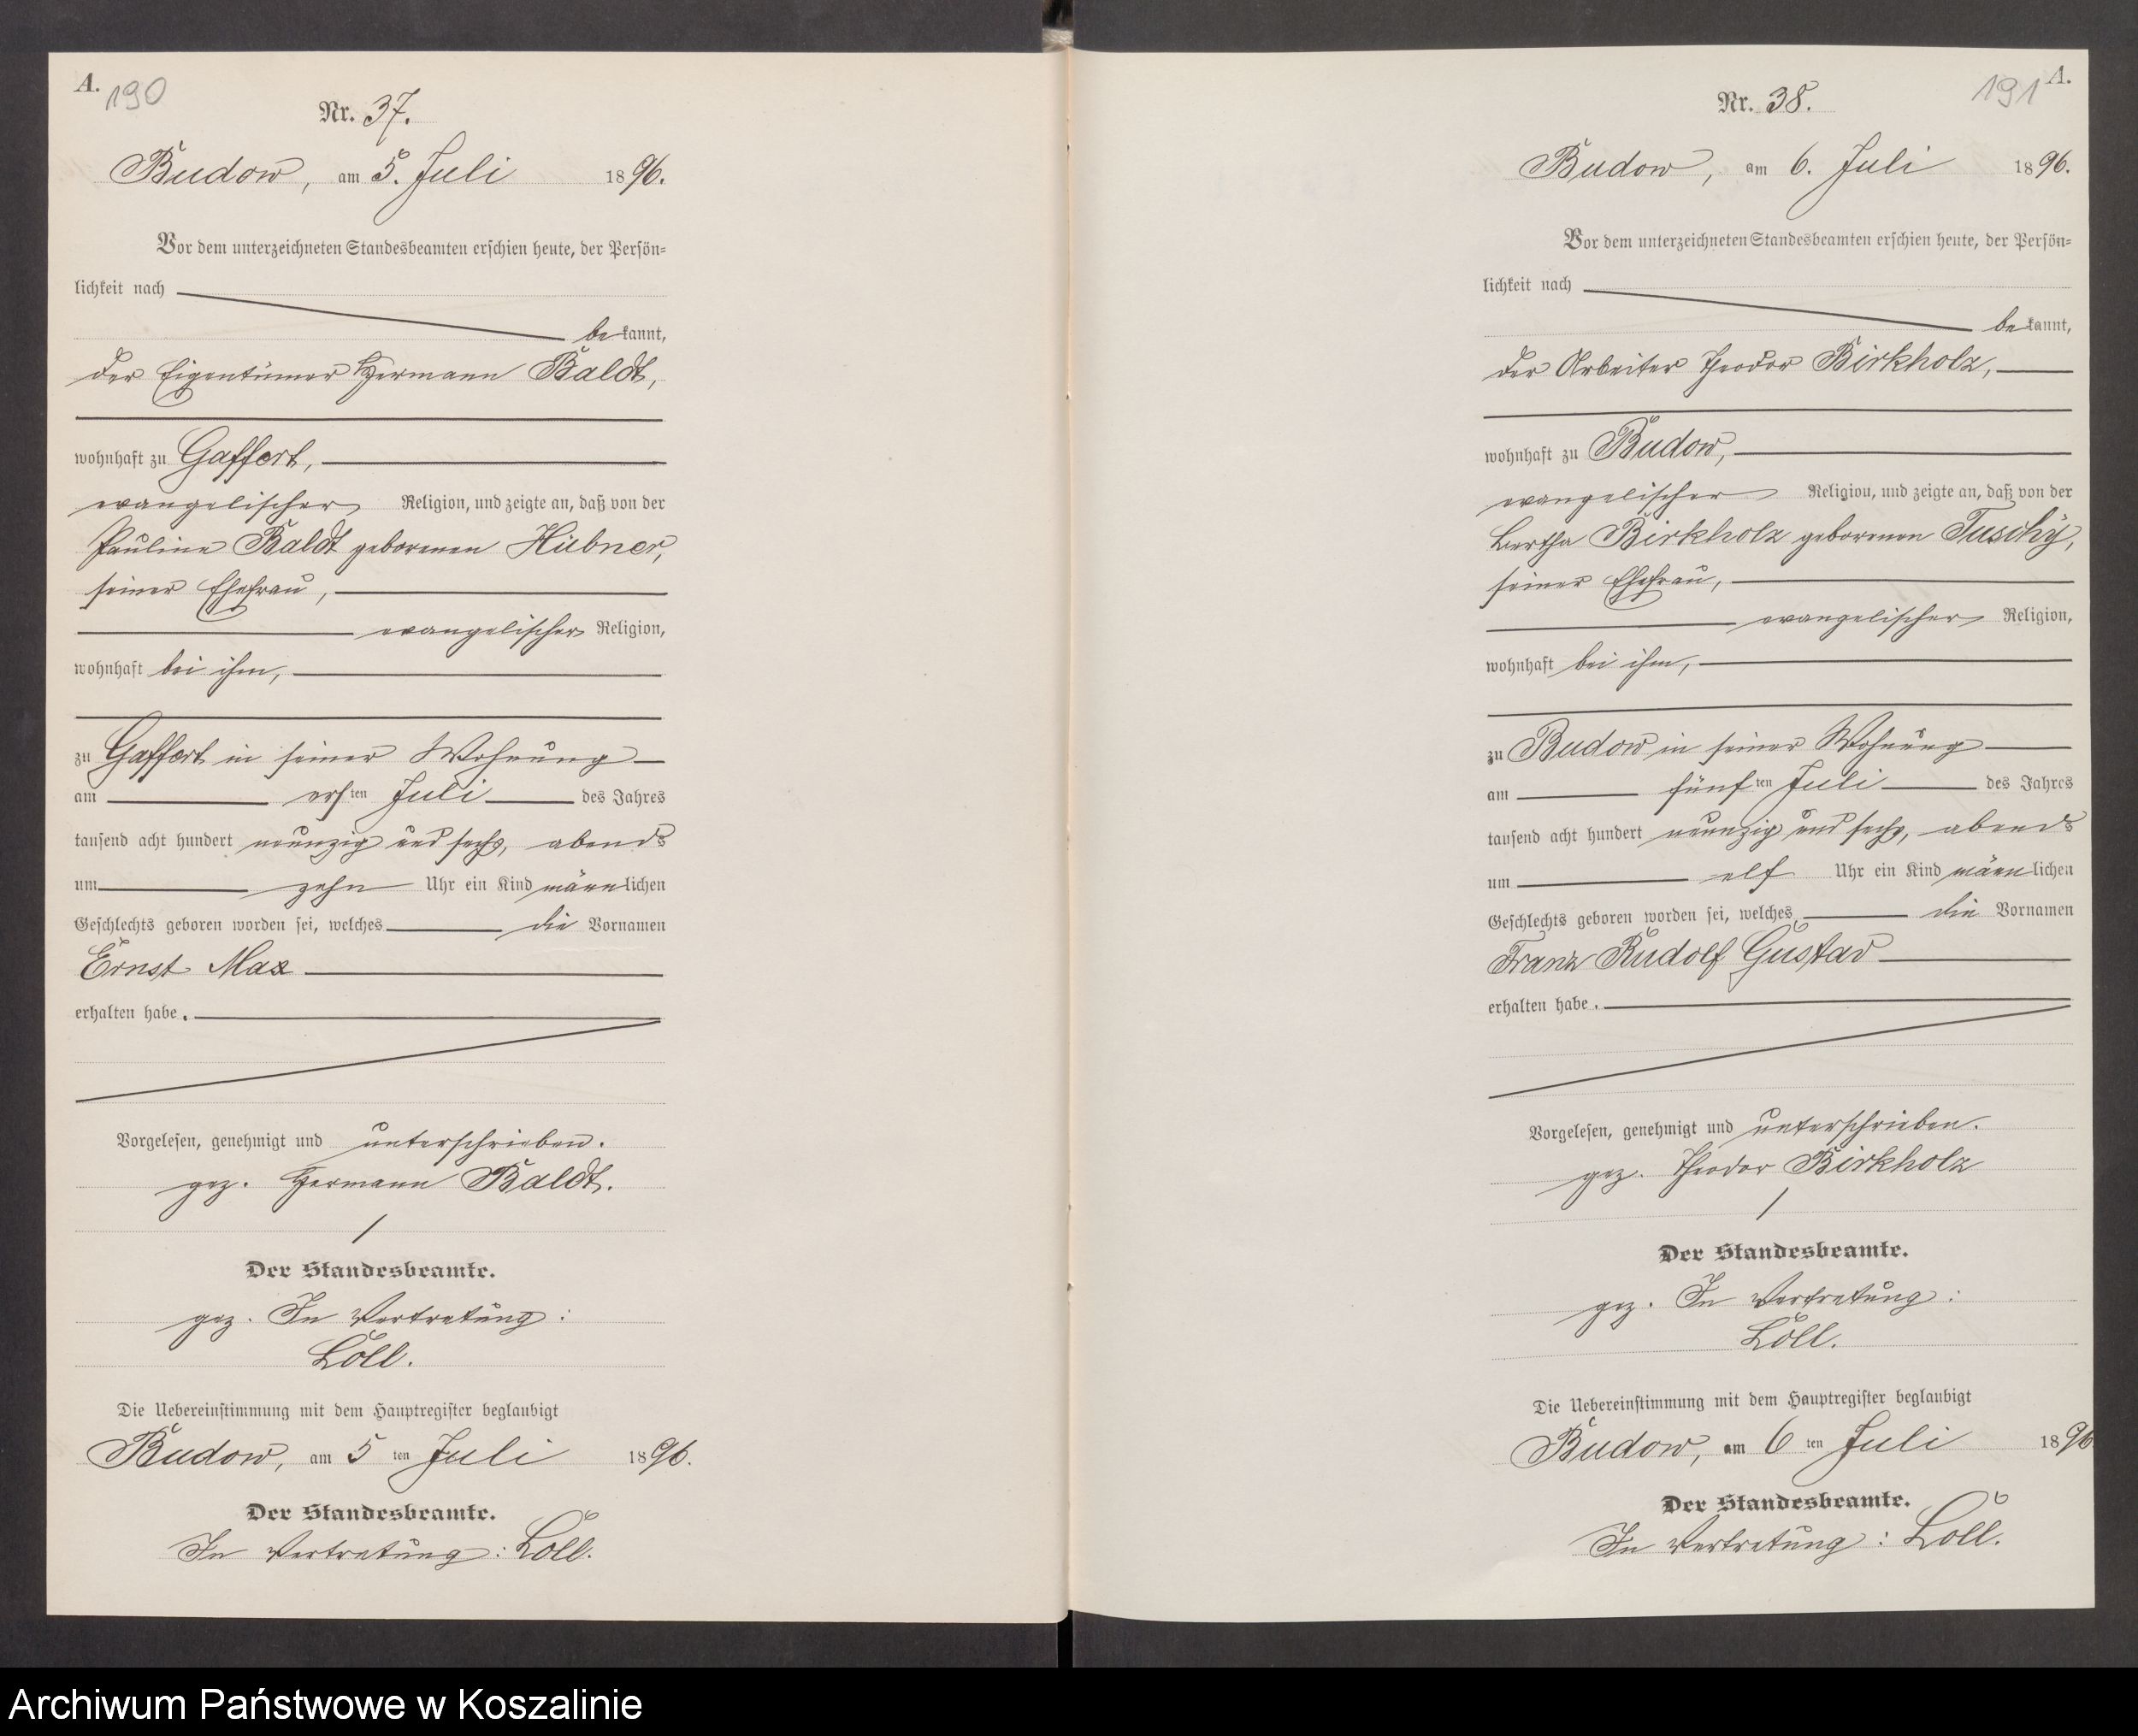 A.
190
Nr. 37.
Budow, am 5. Juli 1896.
Vor dem unterzeichneten Standesbeamten erschien heute, der Persön-
lichkeit nach
bekannt,
der Eigentümer Hermann Baldt,
wohnhaft zu Gaffert,
evangelischer Religion, und zeigte an, daß von der
Pauline Baldt geborenen Hübner,
seiner Ehefrau,
evangelischer Religion,
wohnhaft bei ihm,
zu Gaffert in seiner Wohnung
am ersten Juli des Jahres
tausend acht hundert neunzig und sechs, abends
um zehn Uhr ein Kind männlichen
Geschlechts geboren worden sei, welches die Vornamen
Ernst Max
erhalten habe.
Vorgelesen, genehmigt und unterschrieben.
gez. Hermann Baldt.
Der Standesbeamte.
gez. In Vertretung:
Löll.
Die Uebereinstimmung mit dem Hauptregister beglaubigt
Budow, am 5 ten Juli 1896.
Der Standesbeamte.
In Vertretung: Löll.
191
A.
Nr. 38.
Budow, am 6. Juli 1896.
Vor dem unterzeichneten Standesbeamten erschien heute, der Persön-
lichkeit nach
bekannt,
der Arbeiter Theodor Birkholz,
wohnhaft zu Budow,
evangelischer Religion, und zeigte an, daß von der
Bertha Birkholz geborenen Tuschy,
seiner Ehefrau,
evangelischer Religion,
wohnhaft bei ihm,
zu Budow in seiner Wohnung
am fünften Juli des Jahres
tausend acht hundert neunzig und sechs, abends
um elf Uhr ein Kind männlichen
Geschlechts geboren worden sei, welches die Vornamen
Franz Rudolf Gustav
erhalten habe.
Vorgelesen, genehmigt und unterschrieben.
gez. Theodor Birkholz
Der Standesbeamte.
gez. In Vertretung:
Löll.
Die Uebereinstimmung mit dem Hauptregister beglaubigt
Budow, am 6 ten Juli 1896
Der Standesbeamte.
In Vertretung: Löll.
Archiwum Państwowe w Koszalinie